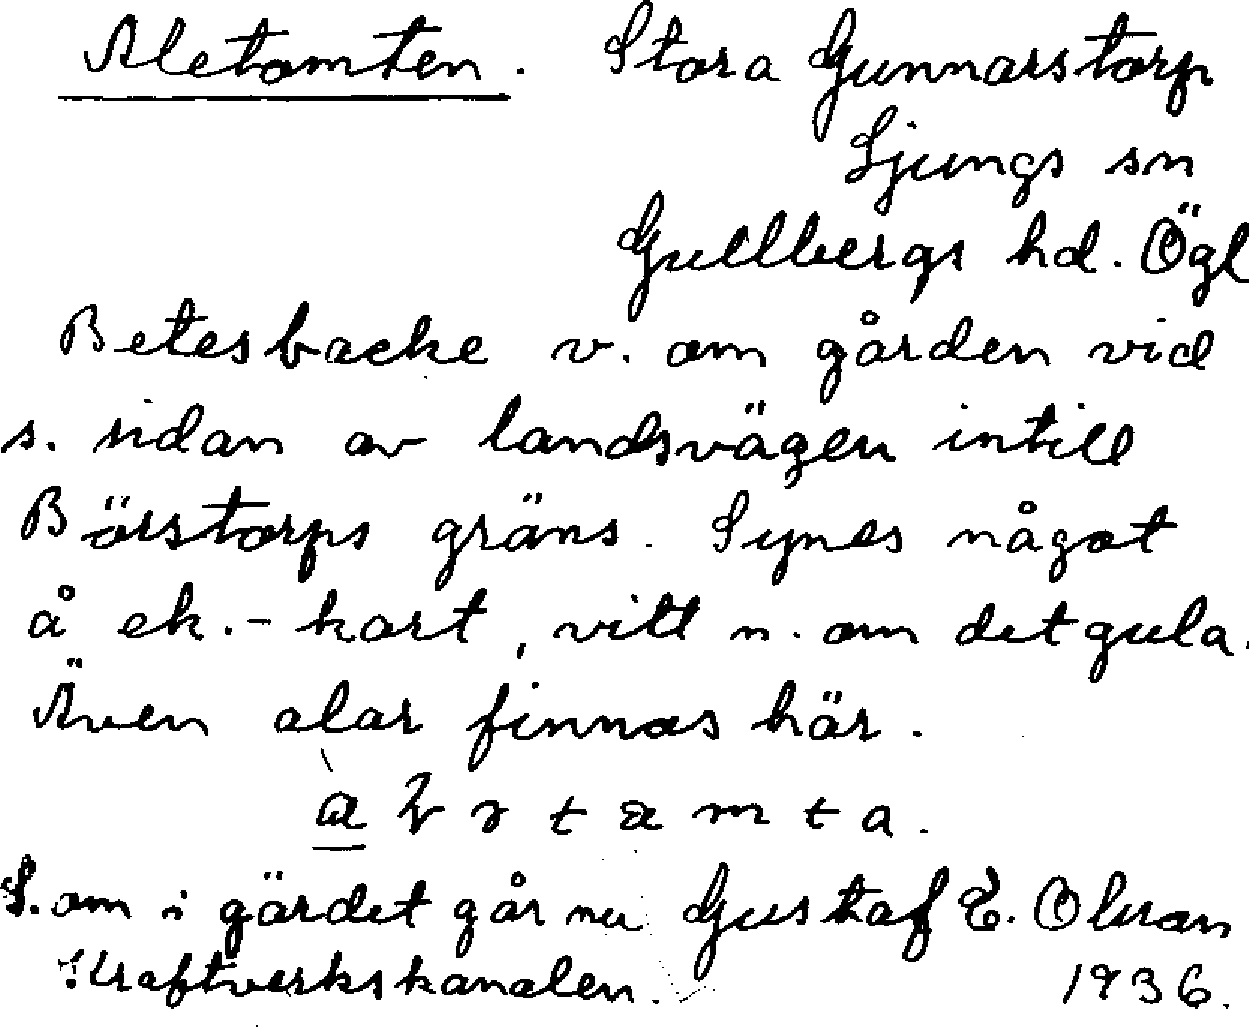 Aletomten. Stora Gunnarstorp.
Ljungs sn
Gullbergs hd. Ögl
Betesbacke v. om gården vid
s. sidan av landsvägen intill
Börstorps gräns. Synes något
å ek.-kart, vitt n. om det gula.
Även alar finnas här.
S. om i gärdet går nu Gustaf E. Olsson
Kraftverkskanalen. 1936.